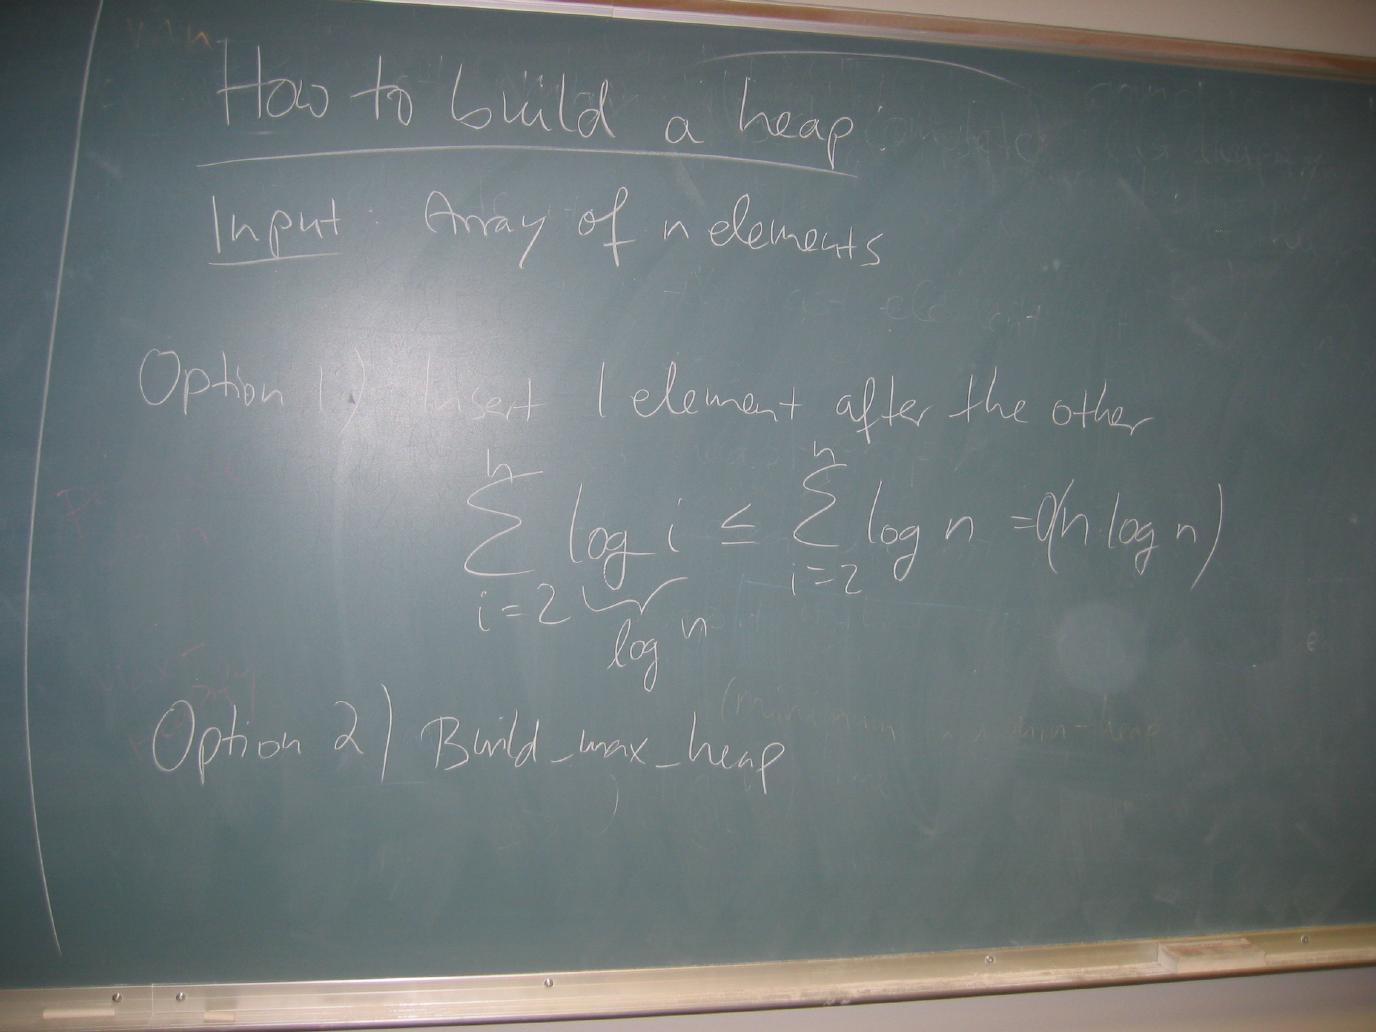 How to build a heap
Input: Array of n elements
Option 1) Insert 1 element after the other
n n
∑ log i ≤ ∑ log n = O(n log n)
i=2 i=2
log n
Option 2) Build_max_heap